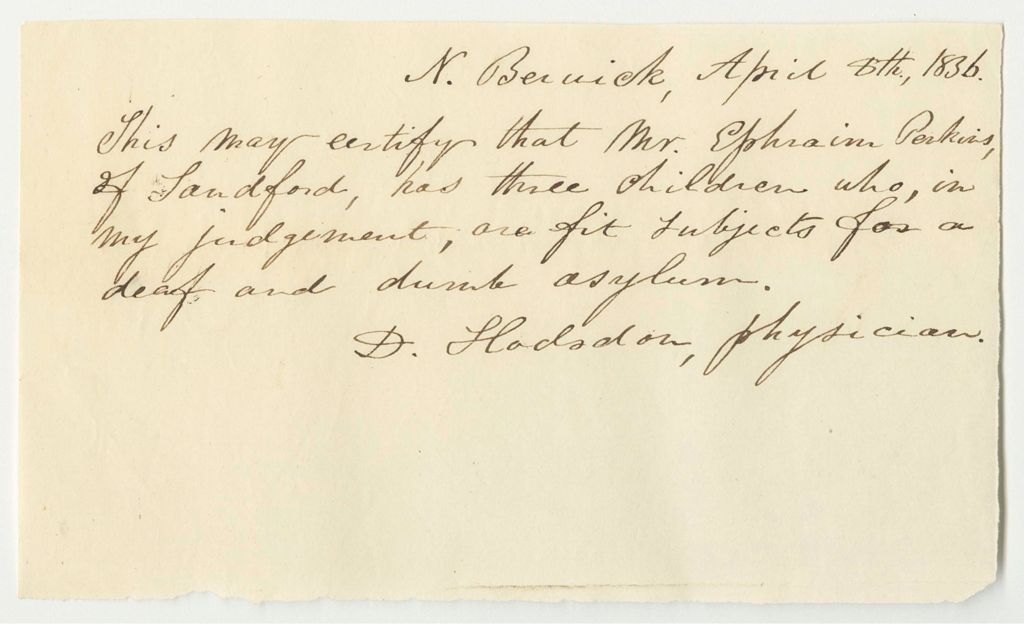 N. Berwick, April 8th., 1836.
This may certify that Mr. Ephraim Perkins,
of Sandford, has three children who, in
my judgement, are fit subjects for a
deaf and dumb asylum.
D. Hodsdon, physician.